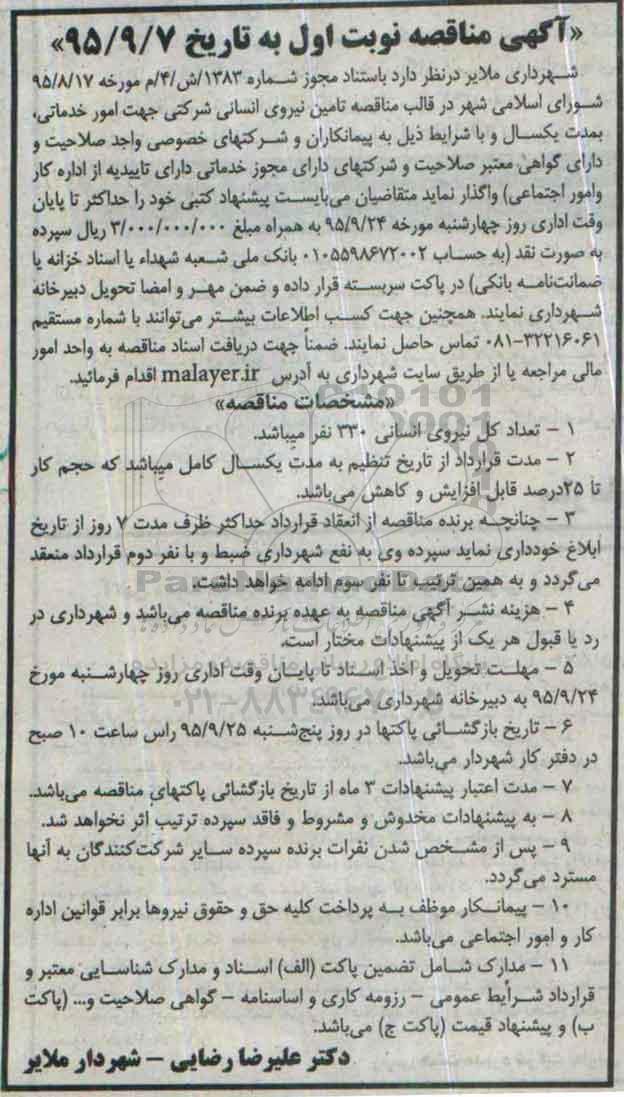 «آگهی مناقصه نوبت اول به تاریخ ۹۵/۹/۷»
شهرداری ملایر درنظر دارد باستناد مجوز شماره ۱۳۸۳/ش/۴/م مورخه ۹۵/۸/۱۷
شورای اسلامی شهر در قالب مناقصه تامین نیروی انسانی شرکتی جهت امور خدماتی،
بمدت یکسال و با شرایط ذیل به پیمانکاران و شرکتهای خصوصی واجد صلاحیت و
دارای گواهی معتبر صلاحیت و شرکتهای دارای مجوز خدماتی دارای تاییدیه از اداره کار
وامور اجتماعی) واگذار نماید متقاضیان می‌بایست پیشنهاد کتبی خود را حداکثر تا پایان
وقت اداری روز چهارشنبه مورخه ۹۵/۹/۲۴ به همراه مبلغ ۳/۰۰۰/۰۰۰/۰۰۰ ریال سپرده
به صورت نقد (به حساب ۰۱۰۵۵۹۸۶۷۲۰۰۲ بانک ملی شعبه شهداء یا اسناد خزانه یا
ضمانت‌نامه بانکی) در پاکت سربسته قرار داده و ضمن مهر و امضا تحویل دبیرخانه
شهرداری نمایند. همچنین جهت کسب اطلاعات بیشتر می‌توانند با شماره مستقیم
۰۸۱-۳۲۲۱۶۰۶۱ تماس حاصل نمایند. ضمناً جهت دریافت اسناد مناقصه به واحد امور
مالی مراجعه یا از طریق سایت شهرداری به آدرس malayer.ir اقدام فرمائید.
«مشخصات مناقصه»
۱ – تعداد کل نیروی انسانی ۳۳۰ نفر میباشد.
۲ – مدت قرارداد از تاریخ تنظیم به مدت یکسال کامل میباشد که حجم کار
تا ۲۵درصد قابل افزایش و کاهش می‌باشد.
۳ – چنانچه برنده مناقصه از انعقاد قرارداد حداکثر ظرف مدت ۷ روز از تاریخ
ابلاغ خودداری نماید سپرده وی به نفع شهرداری ضبط و با نفر دوم قرارداد منعقد
می‌گردد و به همین ترتیب تا نفر سوم ادامه خواهد داشت.
ParsNamadData
۴ – هزینه نشر آگهی مناقصه به عهده برنده مناقصه می‌باشد و شهرداری در
رد یا قبول هر یک از پیشنهادات مختار است.
۵ – مهلت تحویل و اخذ اسناد تا پایان وقت اداری روز چهارشنبه مورخ
۹۵/۹/۲۴ به دبیرخانه شهرداری می‌باشد.
۶ – تاریخ بازگشائی پاکتها در روز پنج‌شنبه ۹۵/۹/۲۵ راس ساعت ۱۰ صبح
در دفتر کار شهردار می‌باشد.
۷ – مدت اعتبار پیشنهادات ۳ ماه از تاریخ بازگشائی پاکتهای مناقصه می‌باشد.
۸ – به پیشنهادات مخدوش و مشروط و فاقد سپرده ترتیب اثر نخواهد شد.
۹ – پس از مشخص شدن نفرات برنده سپرده سایر شرکت‌کنندگان به آنها
مسترد می‌گردد.
۱۰ – پیمانکار موظف به پرداخت کلیه حق و حقوق نیروها برابر قوانین اداره
کار و امور اجتماعی می‌باشد.
۱۱ – مدارک شامل تضمین پاکت (الف) اسناد و مدارک شناسایی معتبر و
قرارداد شرایط عمومی – رزومه کاری و اساسنامه – گواهی صلاحیت و... (پاکت
ب) و پیشنهاد قیمت (پاکت ج) می‌باشد.
دکتر علیرضا رضایی – شهردار ملایر